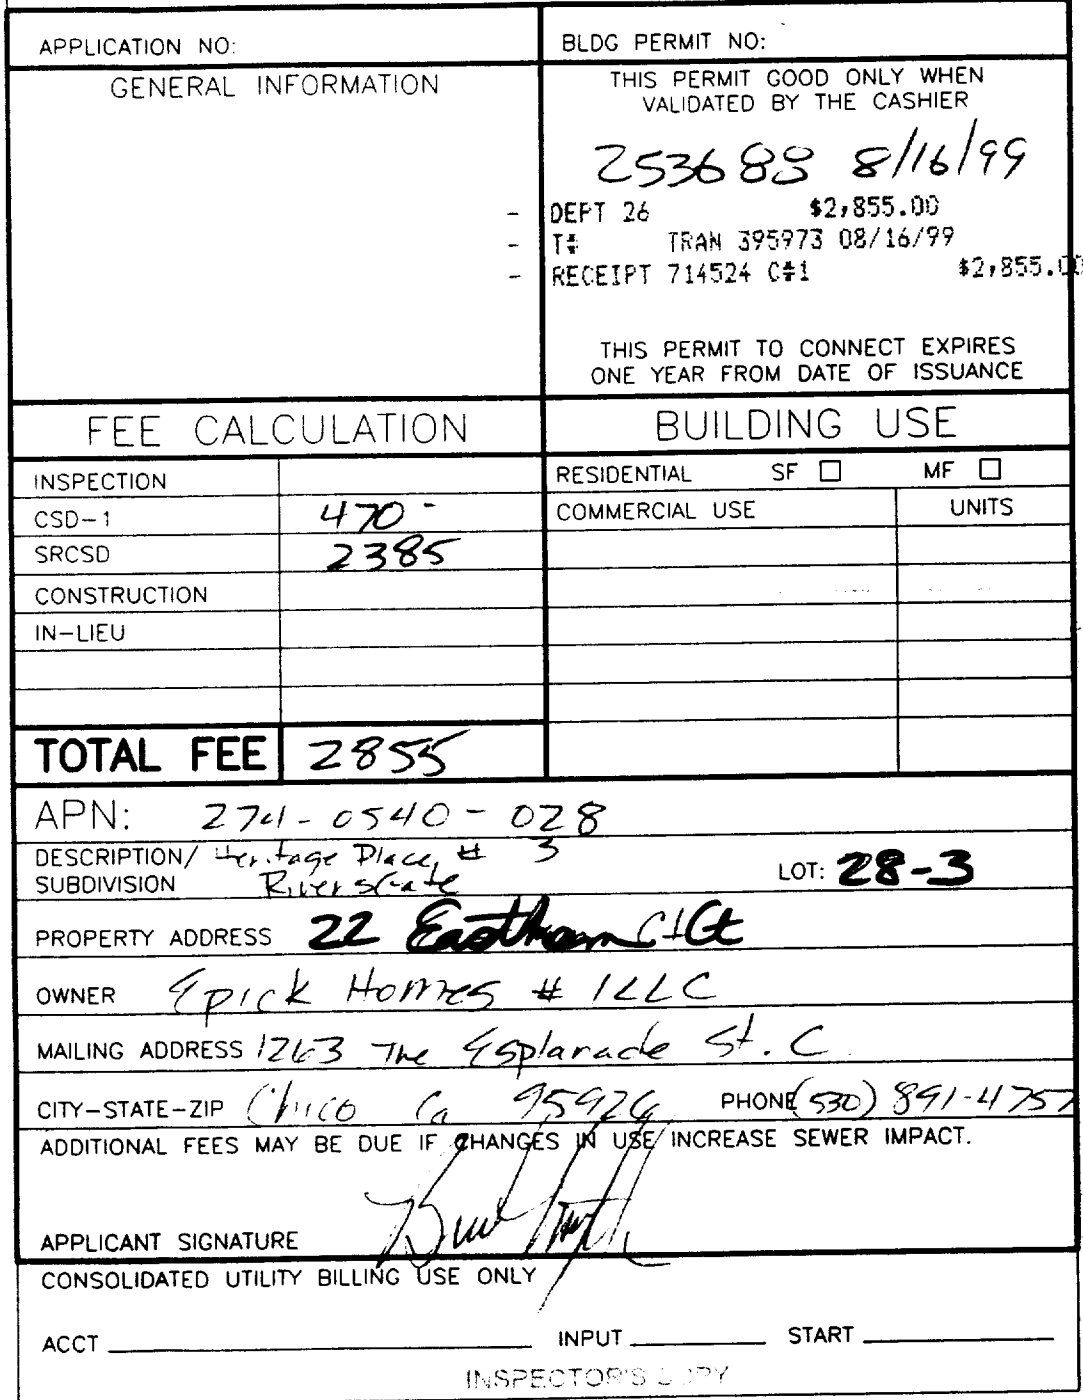 APPLICATION NO:
BLDG PERMIT NO:
GENERAL INFORMATION
THIS PERMIT GOOD ONLY WHEN
VALIDATED BY THE CASHIER
253688 8/16/99
- DEPT 26 $2,855.00
- T# TRAN 395973 08/16/99
- RECEIPT 714524 C#1 $2,855.00
THIS PERMIT TO CONNECT EXPIRES
ONE YEAR FROM DATE OF ISSUANCE
FEE CALCULATION
INSPECTION
CSD-1 470-
SRCSD 2385
CONSTRUCTION
IN-LIEU
TOTAL FEE 2855
BUILDING USE
RESIDENTIAL SF ☐ MF ☐
COMMERCIAL USE UNITS
APN: 274-0540-028
DESCRIPTION/ Heritage Place, # 3
SUBDIVISION Riversgate
LOT: 28-3
PROPERTY ADDRESS 22 Eastham Ct Ct
OWNER Epick Homes # 1 LLC
MAILING ADDRESS 1263 The Esplanade St. C
CITY-STATE-ZIP Chico Ca 95926 PHONE (530) 891-4757
ADDITIONAL FEES MAY BE DUE IF CHANGES IN USE INCREASE SEWER IMPACT.
APPLICANT SIGNATURE
CONSOLIDATED UTILITY BILLING USE ONLY
ACCT INPUT START
INSPECTOR'S COPY